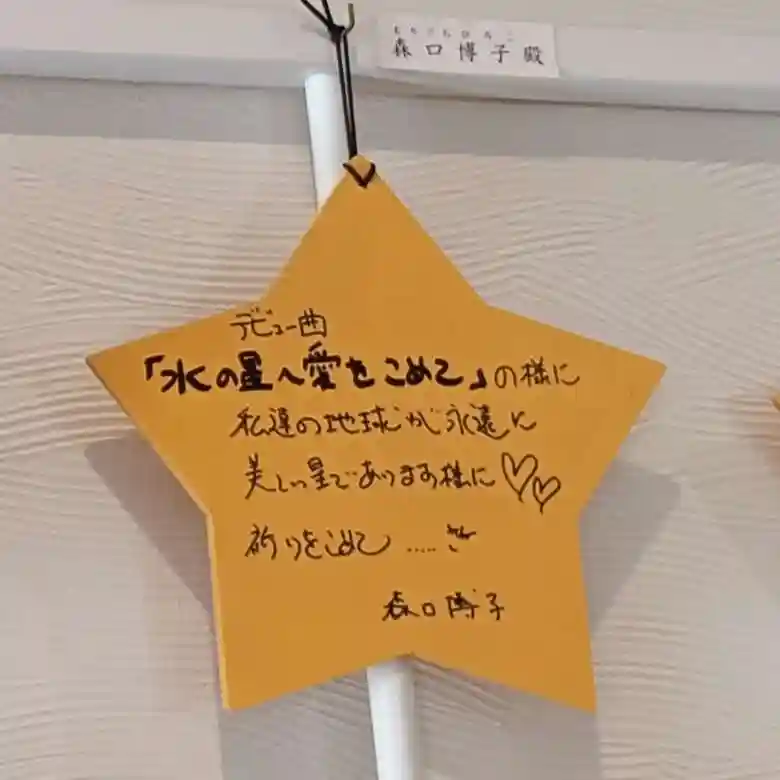 もりぐちひろこ
森口博子殿
デビュー曲
「水の星へ愛をこめて」の様に
私達の地球が永遠に
美しい星であります様に
祈りをこめて .....
森口博子